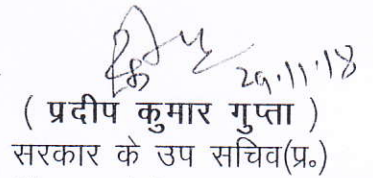 29.11.18
( प्रदीप कुमार गुप्ता )
सरकार के उप सचिव(प्र॰)